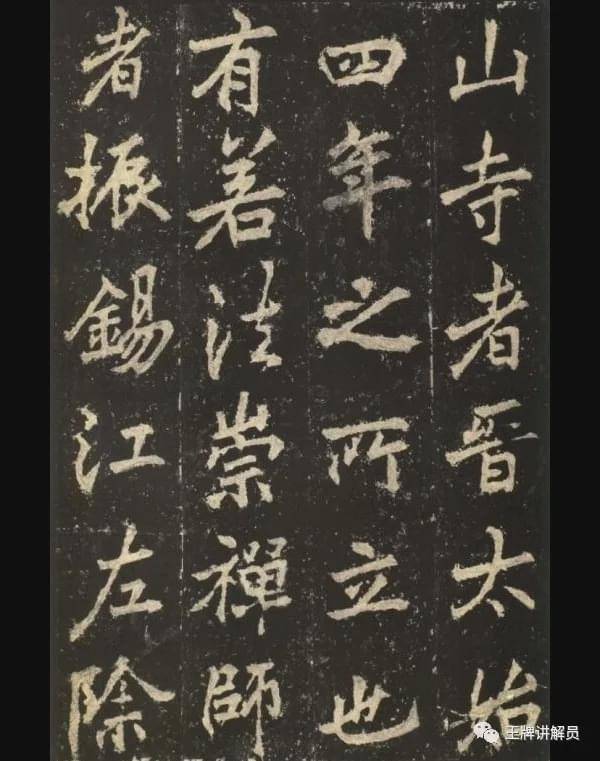 山寺者晉太始
四年之所立也
有若法崇禪師
者振錫江左除
王牌讲解员